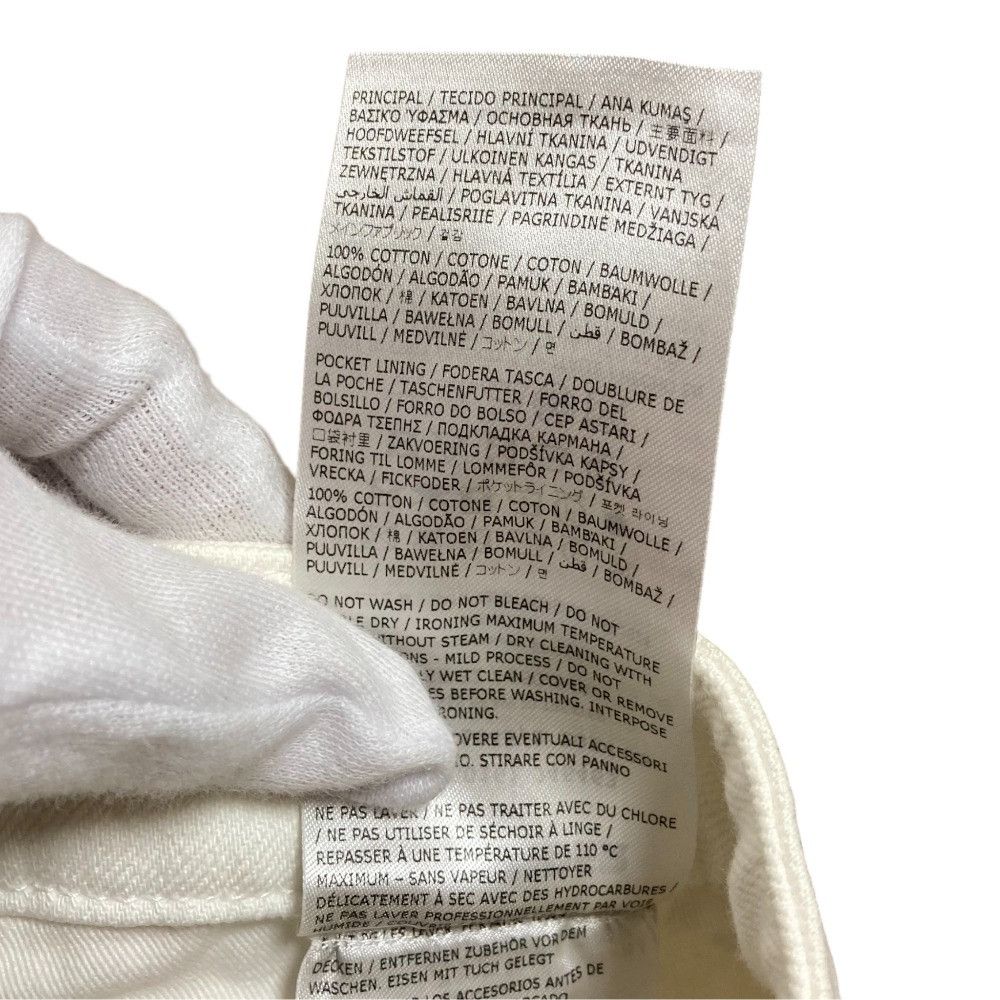 PRINCIPAL / TECIDO PRINCIPAL / ANA KUMAŞ /
ΒΑΣΙΚΌ ΎΦΑΣΜΑ / ОСНОВНАЯ ТКАНЬ / 主要面料 /
HOOFDWEEFSEL / HLAVNÍ TKANINA / UDVENDIGT
TEKSTILSTOF / ULKOINEN KANGAS / TKANINA
ZEWNĘTRZNA / HLAVNÁ TEXTÍLIA / EXTERNT TYG /
القماش الخارجي / POGLAVITNA TKANINA / VANJSKA
TKANINA / PEALISRIIE / PAGRINDINĖ MEDŽIAGA /
メインファブリック / 겉감
100% COTTON / COTONE / COTON / BAUMWOLLE /
ALGODÓN / ALGODÃO / PAMUK / BAMBAKI /
ХЛОПОК / 棉 / KATOEN / BAVLNA / BOMULD /
PUUVILLA / BAWEŁNA / BOMULL / قطن / BOMBAŽ /
PUUVILL / MEDVILNĖ / コットン / 면
POCKET LINING / FODERA TASCA / DOUBLURE DE
LA POCHE / TASCHENFUTTER / FORRO DEL
BOLSILLO / FORRO DO BOLSO / CEP ASTARI /
ΦΟΔΡΑ ΤΣΕΠΗΣ / ПОДКЛАДКА КАРМАНА /
口袋衬里 / ZAKVOERING / PODŠÍVKA KAPSY /
FORING TIL LOMME / LOMMEFÔR / PODŠÍVKA
VRECKA / FICKFODER / ポケットライニング / 포켓 라이닝
100% COTTON / COTONE / COTON / BAUMWOLLE /
ALGODÓN / ALGODÃO / PAMUK / BAMBAKI /
ХЛОПОК / 棉 / KATOEN / BAVLNA / BOMULD /
PUUVILLA / BAWEŁNA / BOMULL / قطن / BOMBAŽ /
PUUVILL / MEDVILNĖ / コットン / 면
NOT WASH / DO NOT BLEACH / DO NOT
DRY / IRONING MAXIMUM TEMPERATURE
WITHOUT STEAM / DRY CLEANING WITH
- MILD PROCESS / DO NOT
WET CLEAN / COVER OR REMOVE
BEFORE WASHING. INTERPOSE
EVENTUALI ACCESSORI
STIRARE CON PANNO
NE PAS LAVER / NE PAS TRAITER AVEC DU CHLORE
/ NE PAS UTILISER DE SÉCHOIR À LINGE /
REPASSER À UNE TEMPÉRATURE DE 110 °C
MAXIMUM – SANS VAPEUR / NETTOYER
DÉLICATEMENT À SEC AVEC DES HYDROCARBURES /
NE PAS LAVER PROFESSIONNELLEMENT PAR VOIE
HUMIDE /
DECKEN / ENTFERNEN ZUBEHÖR VOR DEM
WASCHEN. EISEN MIT TUCH GELEGT
LOS ACCESORIOS ANTES DE